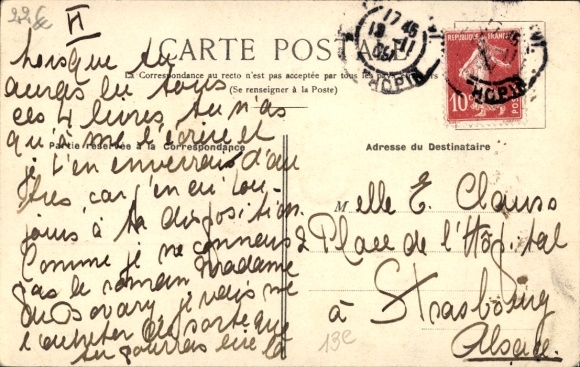 II
CARTE POSTALE
La Correspondance au recto n'est pas acceptée par tous les pays étrangers
(Se renseigner à la Poste)
Partie réservée à la Correspondance
Adresse du Destinataire
Lorsque tu
auras lu tous
ces 4 livres tu n'as
qu'à me l'écrire et
je t'en enverrais d'au
tres car j'en ai tou-
jours à ta disposition.
Comme je ne connais
pas le roman Madame
Bovary, je vais me
l'acheter de sorte que
tu pourras lire là
Melle E. Clauss
2 Place de l'Hôpital
à Strasbourg
Alsace.
REPUBLIQUE FRANÇAISE
10
POSTES
17 45
11
CHOPIN
13e